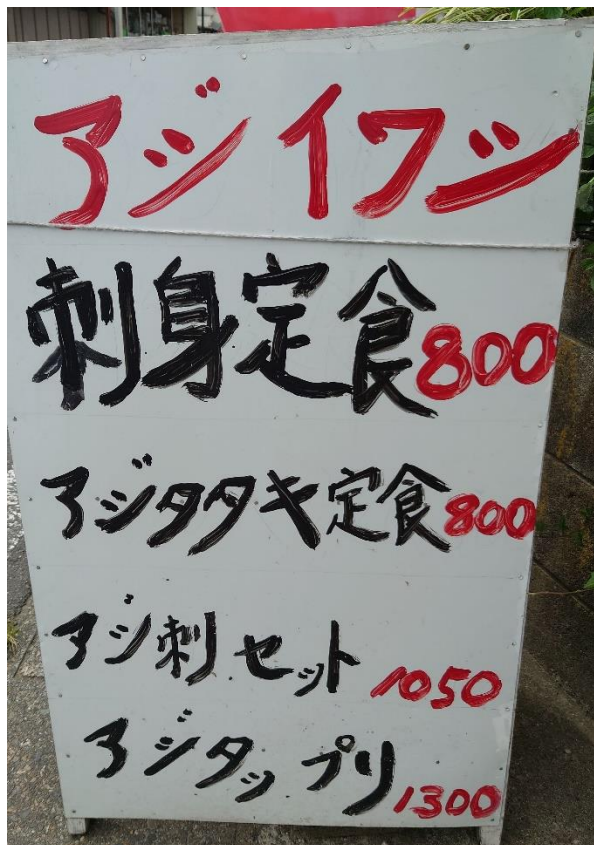 アジイワシ
刺身定食800
アジタタキ定食800
アジ刺セット1050
アジタップリ1300